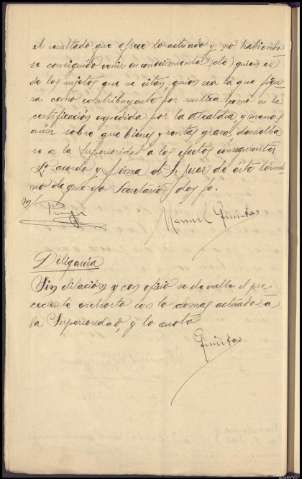 el resultado que ofrece lo actuado y no habiendo
se conseguido venir en conocimiento de quien es
de los sujetos que se citan, quien sea la que figu
ra como contribuyente por el
certificación expedida por la Alcaldía, y menos
aun sobre que bienes y rentas graven, devuelva
se a la Superioridad a los efectos consiguientes
Lo acordó y firma el Sr Juez de este térmi
no de que yo Secretario doy fe.
Manuel Quintas
Diligencia
Sin dilación y con oficio se devuelve el pre
cedente exhorto con lo demas actuado a
la Superioridad, y lo anoto
Quintas